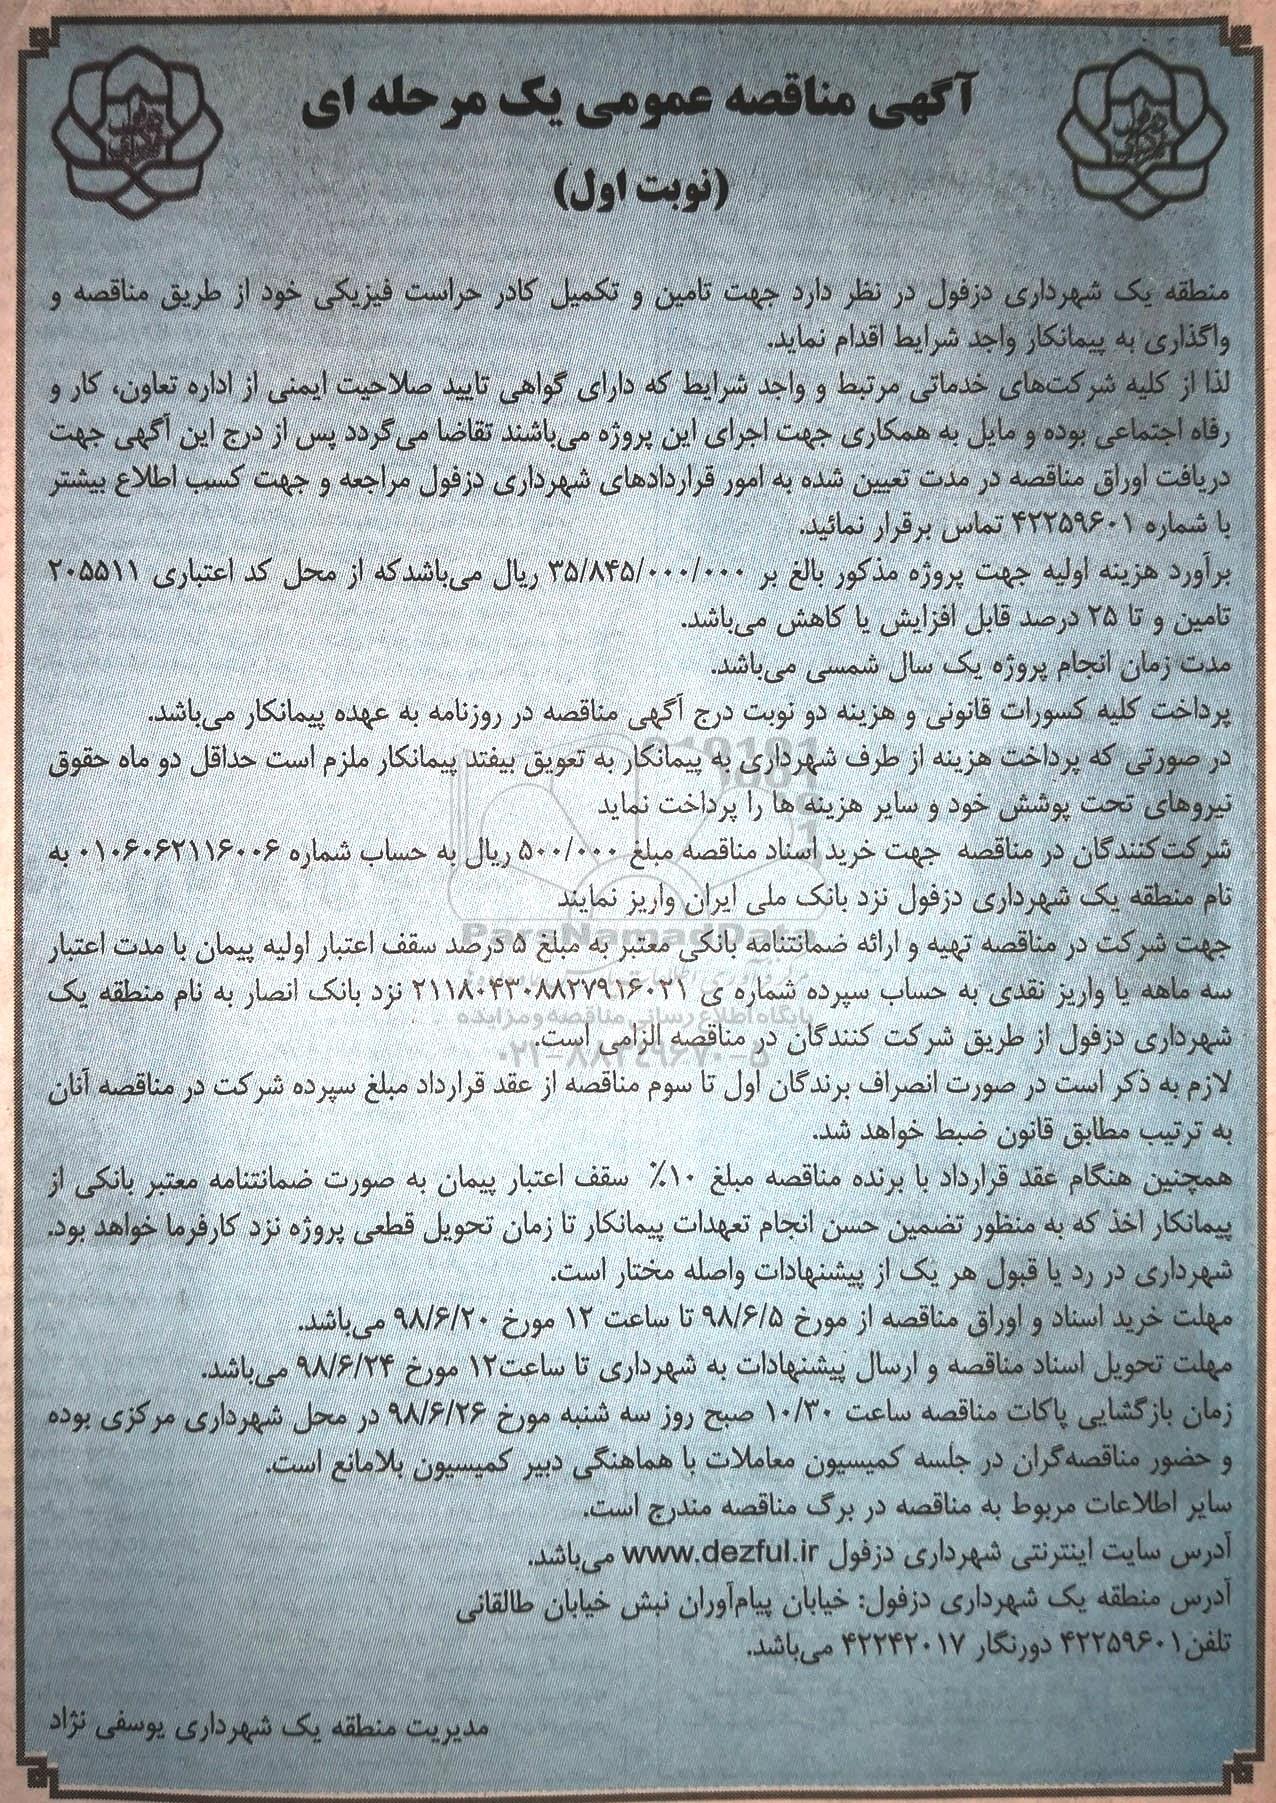 آگهی مناقصه عمومی یک مرحله ای
(نوبت اول)
منطقه یک شهرداری دزفول در نظر دارد جهت تامین و تکمیل کادر حراست فیزیکی خود از طریق مناقصه و
واگذاری به پیمانکار واجد شرایط اقدام نماید.
لذا از کلیه شرکت‌های خدماتی مرتبط و واجد شرایط که دارای گواهی تایید صلاحیت ایمنی از اداره تعاون، کار و
رفاه اجتماعی بوده و مایل به همکاری جهت اجرای این پروژه می‌باشند تقاضا می‌گردد پس از درج این آگهی جهت
دریافت اوراق مناقصه در مدت تعیین شده به امور قراردادهای شهرداری دزفول مراجعه و جهت کسب اطلاع بیشتر
با شماره ۴۲۲۵۹۶۰۱ تماس برقرار نمائید.
برآورد هزینه اولیه جهت پروژه مذکور بالغ بر ۳۵/۸۴۵/۰۰۰/۰۰۰ ریال می‌باشدکه از محل کد اعتباری ۲۰۵۵۱۱
تامین و تا ۲۵ درصد قابل افزایش یا کاهش می‌باشد.
مدت زمان انجام پروژه یک سال شمسی می‌باشد.
پرداخت کلیه کسورات قانونی و هزینه دو نوبت درج آگهی مناقصه در روزنامه به عهده پیمانکار می‌باشد.
در صورتی که پرداخت هزینه از طرف شهرداری به پیمانکار به تعویق بیفتد پیمانکار ملزم است حداقل دو ماه حقوق
نیروهای تحت پوشش خود و سایر هزینه ها را پرداخت نماید
شرکت‌کنندگان در مناقصه جهت خرید اسناد مناقصه مبلغ ۵۰۰/۰۰۰ ریال به حساب شماره ۰۱۰۶۰۶۲۱۱۶۰۰۶ به
نام منطقه یک شهرداری دزفول نزد بانک ملی ایران واریز نمایند
ParsNamadData
جهت شرکت در مناقصه تهیه و ارائه ضمانتنامه بانکی معتبر به مبلغ ۵ درصد سقف اعتبار اولیه پیمان با مدت اعتبار
سه ماهه یا واریز نقدی به حساب سپرده شماره ی ۲۱۱۸۰۴۳۰۸۸۲۷۹۱۶۰۲۱ نزد بانک انصار به نام منطقه یک
پایگاه اطلاع رسانی مناقصه و مزایده
شهرداری دزفول از طریق شرکت کنندگان در مناقصه الزامی است.
۰۲۱-۸۸۳۴۹۶۷۰-۵
لازم به ذکر است در صورت انصراف برندگان اول تا سوم مناقصه از عقد قرارداد مبلغ سپرده شرکت در مناقصه آنان
به ترتیب مطابق قانون ضبط خواهد شد.
همچنین هنگام عقد قرارداد با برنده مناقصه مبلغ ۱۰٪ سقف اعتبار پیمان به صورت ضمانتنامه معتبر بانکی از
پیمانکار اخذ که به منظور تضمین حسن انجام تعهدات پیمانکار تا زمان تحویل قطعی پروژه نزد کارفرما خواهد بود.
شهرداری در رد یا قبول هر یک از پیشنهادات واصله مختار است.
مهلت خرید اسناد و اوراق مناقصه از مورخ ۹۸/۶/۵ تا ساعت ۱۲ مورخ ۹۸/۶/۲۰ می‌باشد.
مهلت تحویل اسناد مناقصه و ارسال پیشنهادات به شهرداری تا ساعت۱۲ مورخ ۹۸/۶/۲۴ می‌باشد.
زمان بازگشایی پاکات مناقصه ساعت ۱۰/۳۰ صبح روز سه شنبه مورخ ۹۸/۶/۲۶ در محل شهرداری مرکزی بوده
و حضور مناقصه‌گران در جلسه کمیسیون معاملات با هماهنگی دبیر کمیسیون بلامانع است.
سایر اطلاعات مربوط به مناقصه در برگ مناقصه مندرج است.
آدرس سایت اینترنتی شهرداری دزفول www.dezful.ir می‌باشد.
آدرس منطقه یک شهرداری دزفول: خیابان پیام‌آوران نبش خیابان طالقانی
تلفن۴۲۲۵۹۶۰۱ دورنگار ۴۲۲۴۲۰۱۷ می‌باشد.
مدیریت منطقه یک شهرداری یوسفی نژاد